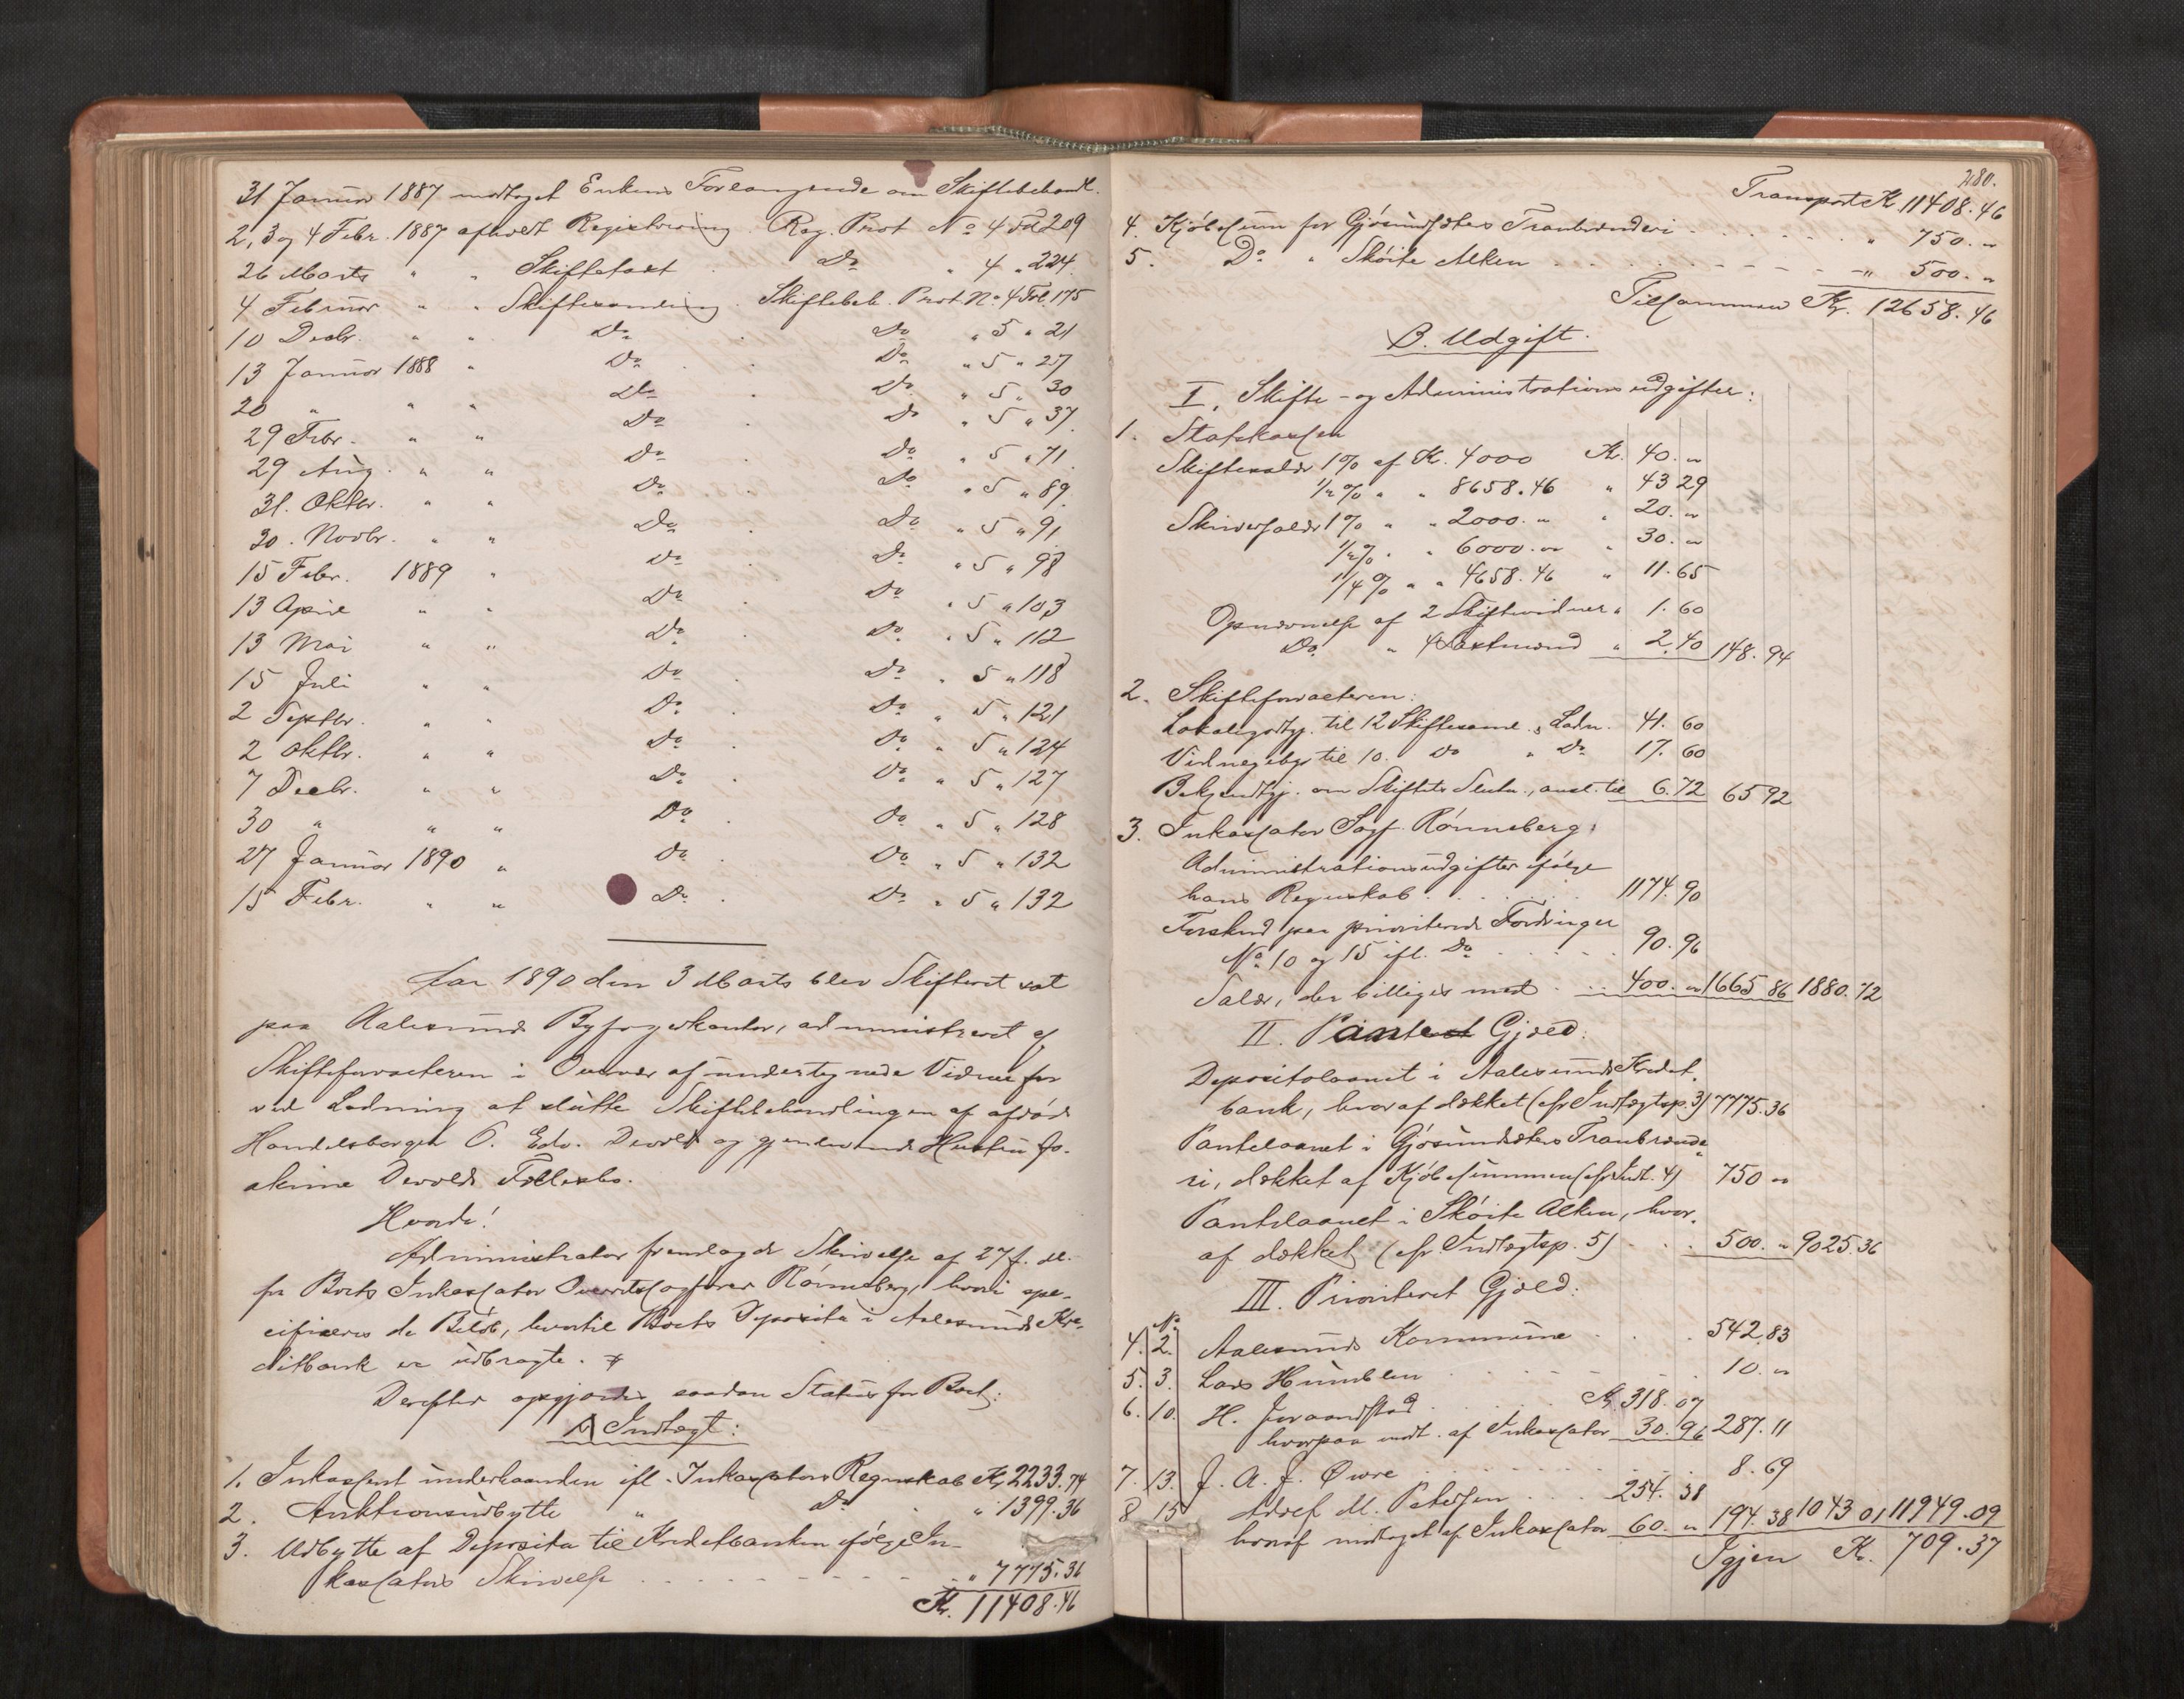 31 Januar 1887 modtaget Enkens Forlangende om Skiftebehandl.
2, 3 og 4 Febr. 1887 afholdt Registrering Reg. Prot No 4 Fol 209
26 Marts " " Skiftetaxt . Do " 4 " 224
4 Februar " " Skiftesamling . Skiftebeh. Prot No 4 Fol. 175
10 Decbr. " " Do . Do " 5 " 21
13 Januar 1888 " Do . . Do " 5 " 27
20 " " " Do . Do " 5 " 30
29 Febr. " " Do Do " 5 " 37
29 Aug. " " Do . Do " 5 " 71
31. Oktbr. " " Do . Do " 5 " 89
30. Novbr. " " Do . Do " 5 " 91
15 Febr. 1889 " Do . Do " 5 " 98
13 April " " Do . Do " 5 " 103
13 Mai " " Do . Do " 5 " 112
15 Juli " " Do . Do " 5 " 118
2 Septbr. " " Do . Do " 5 " 121
2 Oktbr. " " Do . Do " 5 " 124
7 Decbr. " " Do . Do " 5 " 127
30 " " " Do . Do " 5 " 128
27 Januar 1890 " Do . Do " 5 " 132
15 Febr. " " Do . Do " 5 " 132
Aar 1890 den 3 Marts blev Skifteret sat
paa Aalesunds Byfogedkontor, administreret af
Skifteforvalteren i Overvær af undertegnede Vidner for
ved Ladning at slutte Skiftebehandlingen af afdøde
Handelsborger O. Edv. Devold og gjenlevende Hustru Jo-
akime Devolds Fællesbo.
Hvorda!
Administrator fremlagde Skrivelse af 27 f. M.
fra Boets Inkassator Overretssagfører Rønneberg, hvori spe-
cificeres de Beløb, hvortil Boets Deposita i Aalesunds Kre-
ditbank er udbragte.
Derefter opgjordes saadan Status for Boet:
A Indtægt:
1. Inkasseret underhaanden ifl. Inkassators Regnskab Kr. 2233.74
2. Auktionsudbytte " Do " 1399.36
3. Udbytte af Deposita til Kreditbanken ifølge In-
kassators Skrivelse . . . . . . . . " 7775.36
Kr. 11408.46
280.
Transport Kr. 11408.46
4. Kjøbesum for Gjøsundsæters Tranbrænderi . . . . . . " 750. "
5. Do " Skøite Alken . . . . . . . . . " 500. "
Tilsammen Kr. 12658.46
B. Udgift.
I. Skifte- og Administrationsudgifter:
1. Statskassen
Skiftesalær 1 % af Kr. 4000 Kr. 40. "
1/2 % " " 8658.46 " 43 29
Skriversalær 1 % " " 2000. " " 20. "
1/2 % " " 6000. " " 30. "
1/4 % " " 4658.46 " 11.65
Opnævnelse af 2 Skiftevidner " 1.60
Do. " 4 Laxtmænd " 2.40 148.94
2. Skifteforvalteren:
Lokalegodtgj. til 12 Skiftesaml. & Ladn. 41.60
Vidnegebyr til 10. Do " Do 17.60
Bekjendtgj. om Skiftets Slutn., ansl. til 6.72 65 92
3. Inkassator Sagf. Rønneberg:
Administrationsudgifter ifølge
hans Regnskab . . . . . . 1174.90
Forskud paa prioriterede Fordringer
No 10 og 15 ifl. Do . . . . . 90.96
Salær, der billiges med . . . 400. " 1665 86 1880.72
II. Panteret Gjæld:
Depositolaanet i Aalesunds Kredit-
bank, hvoraf dækket (cfr Indtægtsp. 3) 7775.36
Pantelaanet i Gjøsundsæters Tranbrænde-
ri, dækket af Kjøbesummen (cfr Indt. 4) 750 "
Pantelaanet i Skøite Alken, hvor-
af dækket (cfr Indtægtsp. 5) . . . 500. " 9025.36
III. Prioriteret Gjæld:
No
4. 2. Aalesunds Kommune . . . 542.83
5. 3. Lars Humblen . . . . . . 10. "
6. 10. H. Joraandstad . . . . Kr. 318.07
hvorpaa modt. af Inkassator 30.96 287.11
7. 13. J. A. J. Øwre . . . . . . 8.69
8 15 Adolf M. Petersen . . . 254.38
hvoraf modtaget af Inkassator 60. " 194.38 1043 01 11949.09
Igjen Kr. 709.37